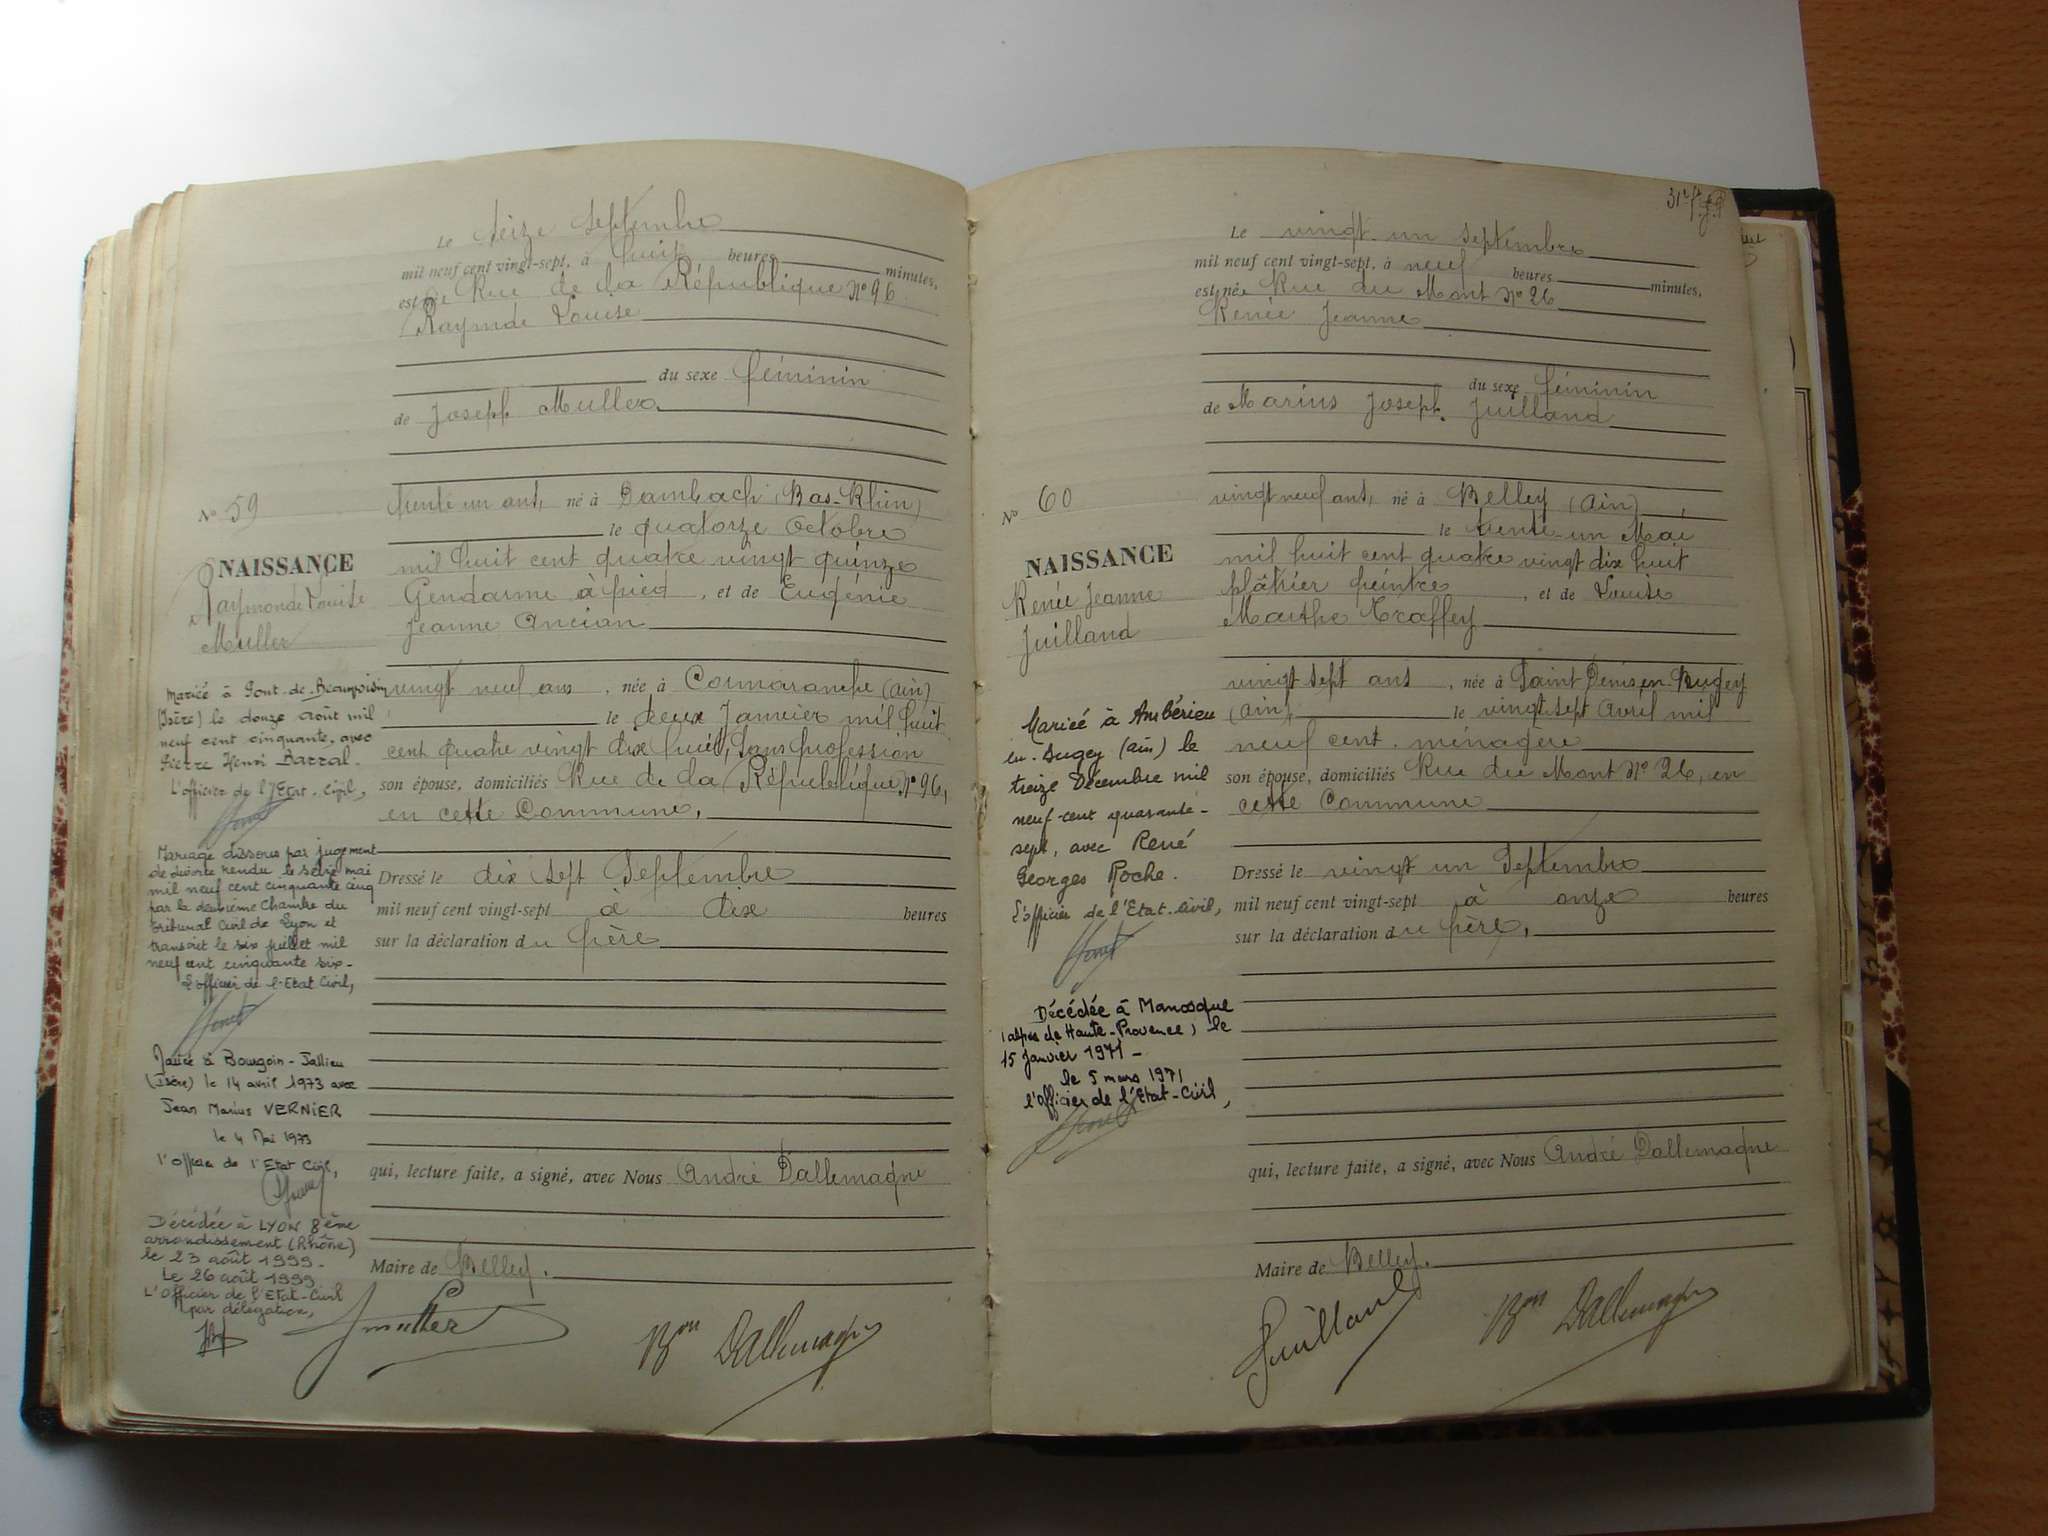 Le seize Septembre
mil neuf cent vingt-sept, à huit heures minutes,
est née Rue de la République N° 96
Raymde Louise
du sexe féminin
de Joseph Muller
N° 59
trente un ans, né à Dambach (Bas-Rhin)
le quatorze Octobre
NAISSANCE
mil huit cent quatre vingt quinze
Raymonde Louise
Gendarme à pied, et de Eugénie
Muller
Jeanne Ancian
vingt neuf ans, née à Cormaranche (Ain)
le deux Janvier mil huit
cent quatre vingt dix huit, sans profession
son épouse, domiciliés Rue de la République N° 96,
en cette Commune.
Dressé le dix sept Septembre
mil neuf cent vingt-sept à dix heures
sur la déclaration du père
qui, lecture faite, a signé, avec Nous André Dallemagne
Maire de Belley.
Mariée à Pont-de-Beauvoisin
(Isère) le douze août mil
neuf cent cinquante, avec
Pierre Henri Barral.
L'officier de l'Etat-Civil,
Mariage dissous par jugement
de divorce rendu le seize mai
mil neuf cent cinquante cinq
par la deuxième Chambre du
tribunal Civil de Lyon et
transcrit le six juillet mil
neuf cent cinquante six-
L'officier de l'Etat Civil,
à Bourgoin-Jallieu
(Isère) le 14 avril 1973 avec
Jean Marius VERNIER
le 4 Mai 1973
l'Officier de l'Etat Civil,
Décédée à LYON 8ème
arrondissement (Rhône)
le 23 août 1999-
Le 26 août 1999
L'Officier de l'Etat-Civil
par délégation,
Jmuller
Bon Dallemagne
31e f.
Le vingt un septembre
mil neuf cent vingt-sept, à neuf heures minutes,
est née Rue du Mont N° 26
Renée Jeanne
du sexe féminin
de Marius Joseph Juilland
N° 60
vingt neuf ans, né à Belley (Ain)
le trente-un Mai
NAISSANCE
mil huit cent quatre vingt dix huit
Renée Jeanne
plâtrier peintre, et de Louise
Juilland
Marthe Traffey
vingt sept ans, née à Saint Denis en Bugey
(Ain) le vingt-sept Avril mil
neuf cent. ménagère
son épouse, domiciliés Rue du Mont N° 26, en
cette Commune
Dressé le vingt un Septembre
mil neuf cent vingt-sept à onze heures
sur la déclaration du père,
qui, lecture faite, a signé, avec Nous André Dallemagne
Maire de Belley.
Mariée à Ambérieu
en-Bugey (Ain) le
treize Décembre mil
neuf-cent quarante-
sept, avec René
Georges Roche.
L'officier de l'Etat-Civil,
Décédée à Manosque
(Alpes de Haute-Provence) le
15 Janvier 1971-
le 5 mars 1971
l'Officier de l'Etat-Civil,
Juilland
Bon Dallemagne